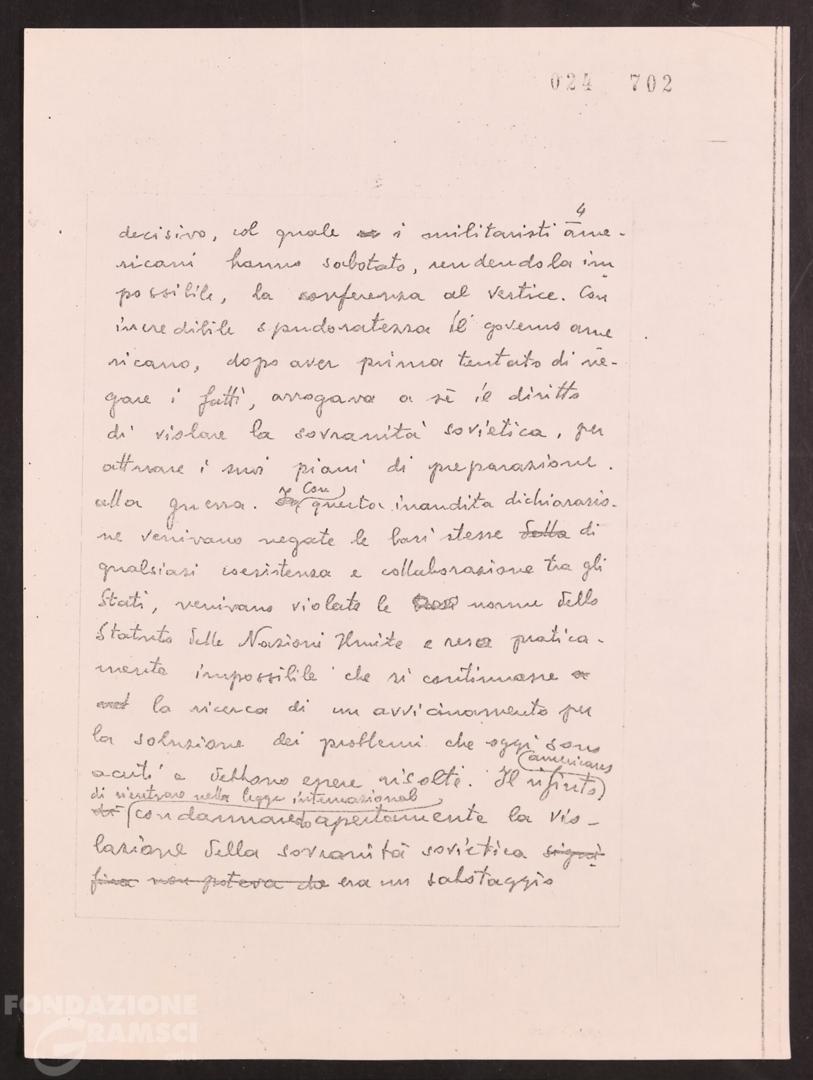 024 702
4
decisivo, col quale i militaristi ame-
ricani hanno sabotato, rendendola im
possibile, la conferenza al vertice. Con
incredibile spudoratezza il governo ame
ricano, dopo aver prima tentato di ne-
gare i fatti, arrogava a sè il diritto
di violare la sovranità sovietica, per
attuare i suoi piani di preparazione
alla guerra. Con questa inaudita dichiarazio-
ne venivano negate le basi stesse della di
qualsiasi coesistenza e collaborazione tra gli
Stati, venivano violate le norme dello
Statuto delle Nazioni Unite e resa pratica-
mente impossibile che si continuasse
la ricerca di un avvicinamento per
la soluzione dei problemi che oggi sono
americano
acuti e debbono essere risolti. Il rifiuto
di rientrare nella legge internazionale
condannando apertamente la vio-
lazione della sovranità sovietica signi
fica non poteva che era un sabotaggio
FONDAZIONE
GRAMSCI